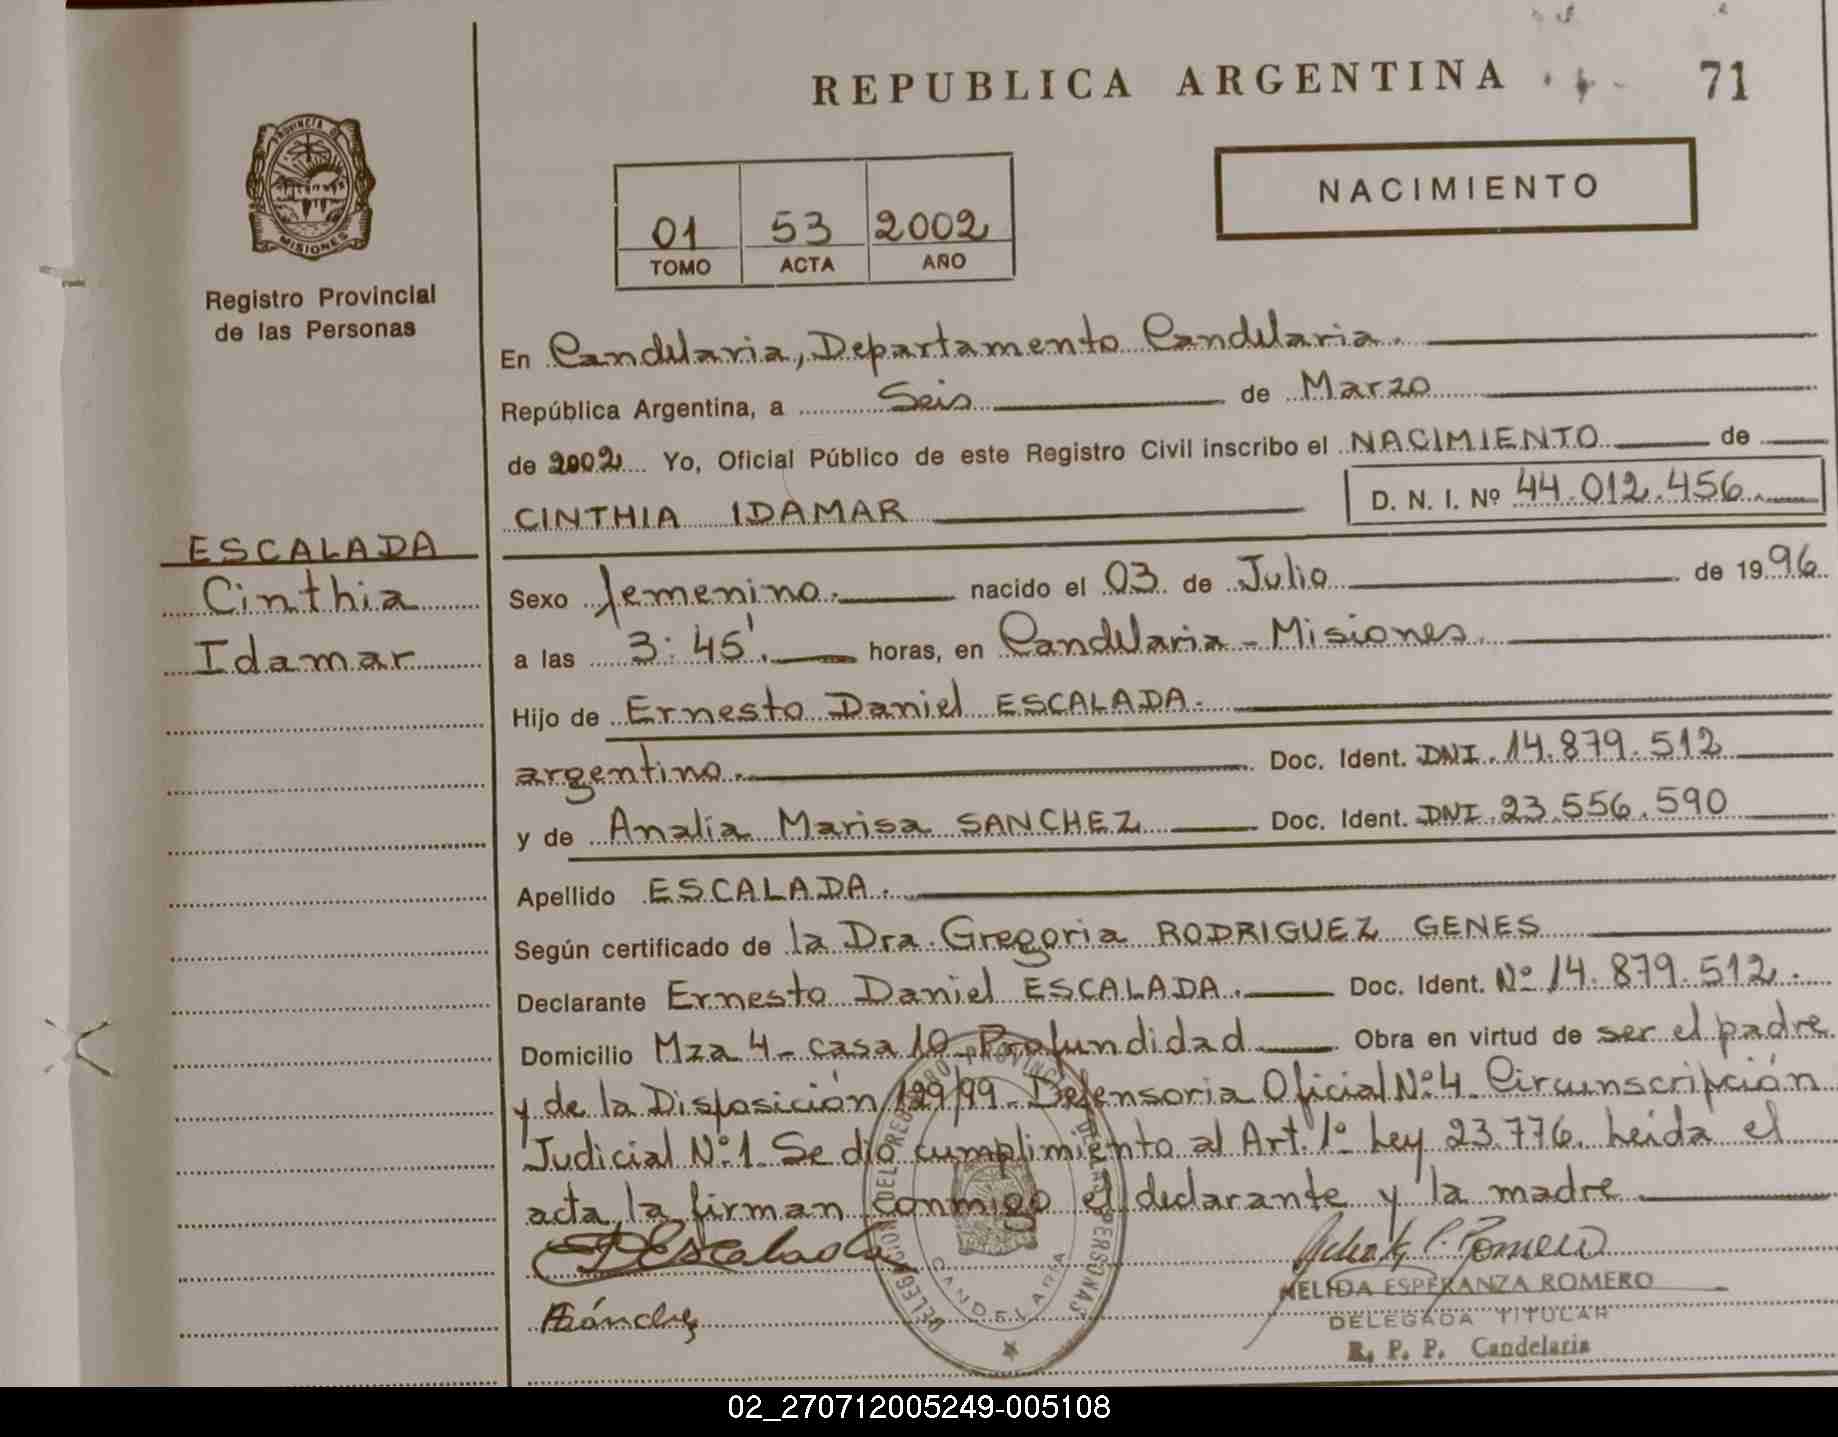 REPUBLICA ARGENTINA
71
PROVINCIA DE
MISIONES
Registro Provincial
de las Personas
01 53 2002
TOMO ACTA AÑO
NACIMIENTO
En Candelaria, Departamento Candelaria.
República Argentina, a Seis de Marzo
de 2002 Yo, Oficial Público de este Registro Civil inscribo el NACIMIENTO de
CINTHIA IDAMAR
D. N. I. Nº 44.012.456.
ESCALADA
Cinthia
Idamar
Sexo femenino. nacido el 03 de Julio de 1996
a las 3:45'. horas, en Candelaria - Misiones.
Hijo de Ernesto Daniel ESCALADA.
argentino. Doc. Ident. DNI. 14.879.512
y de Analía Marisa SANCHEZ Doc. Ident. DNI. 23.556.590
Apellido ESCALADA.
Según certificado de la Dra. Gregoria RODRIGUEZ GENES
Declarante Ernesto Daniel ESCALADA. Doc. Ident. Nº 14.879.512.
Domicilio Mza 4 - casa 10 - Profundidad Obra en virtud de ser el padre
y de la Disposición 129/99 - Defensoria Oficial Nº 4. Circunscripción
Judicial Nº 1. Se dió cumplimiento al Art. 1º Ley 23.776. Leída el
acta, la firman conmigo el declarante y la madre
DELEGACION DEL REGISTRO PROVINCIAL DE LAS PERSONAS
CANDELARIA
Escalada
Sánchez
NELIDA ESPERANZA ROMERO
DELEGADA TITULAR
R. P. P. Candelaria
02_270712005249-005108